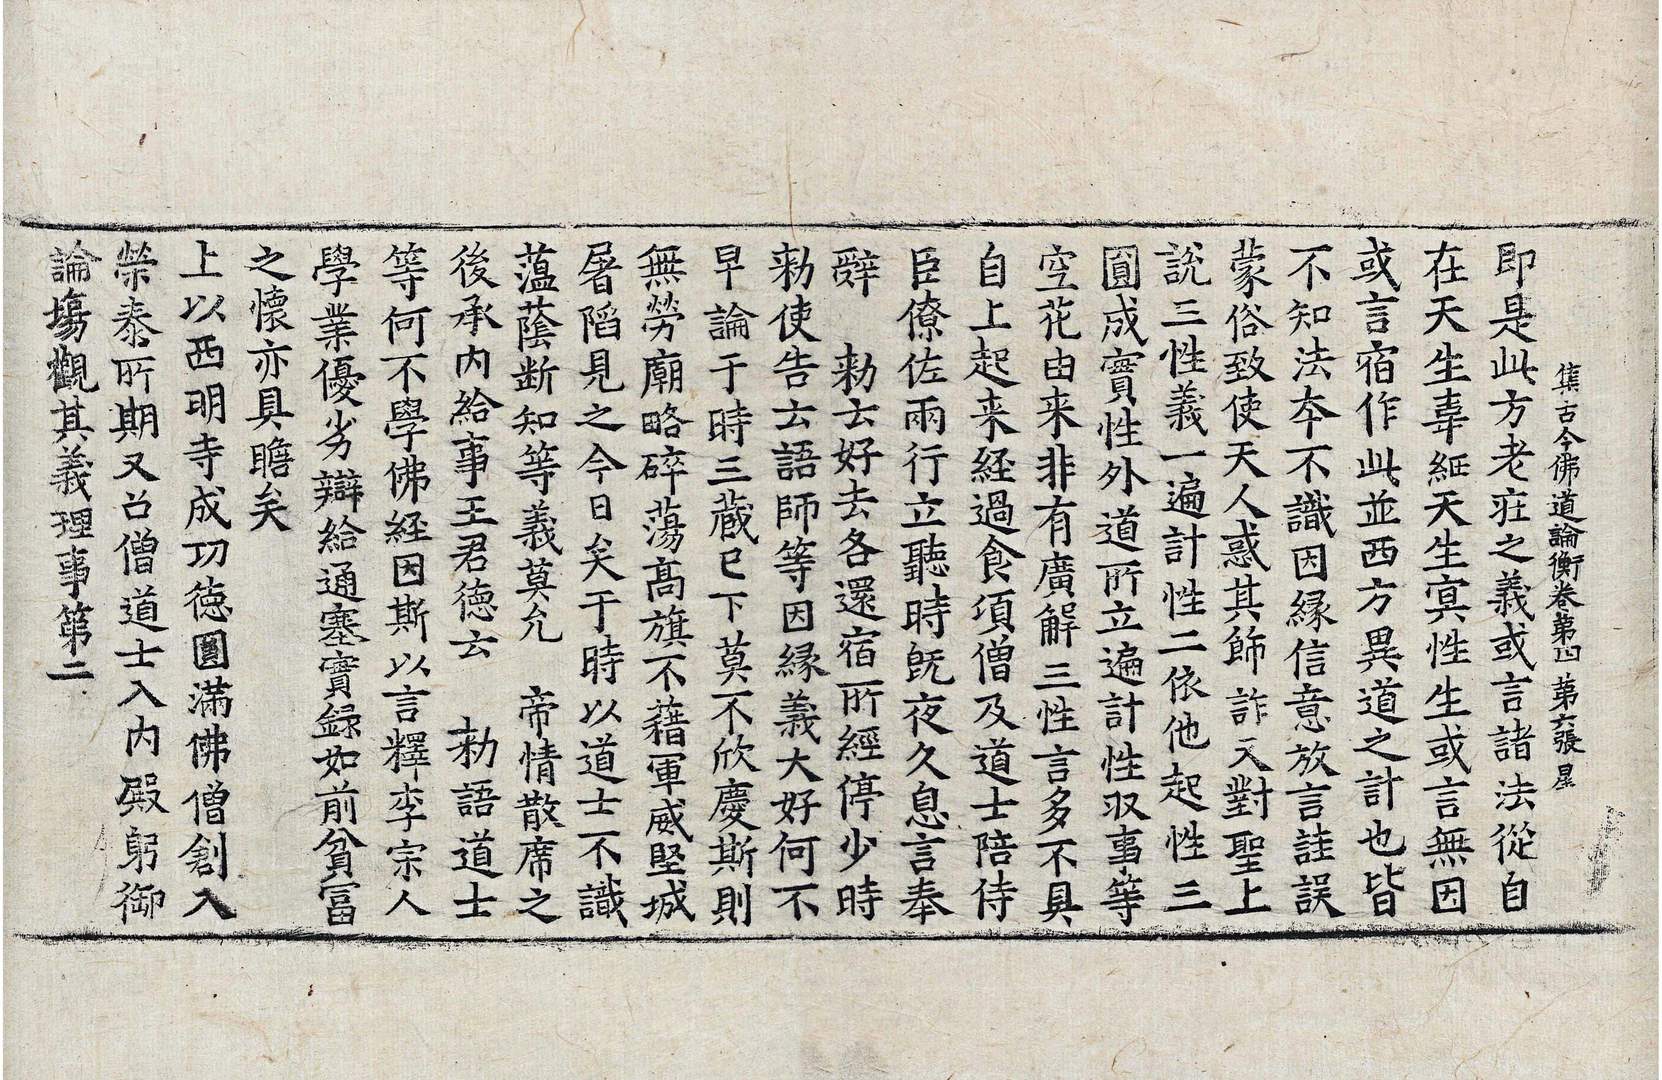 集古今佛道論衡卷第四 第六張 星
即是此方老疘之義或言諸法從自
在天生韋紐天生㝠性生或言無因
或言宿作此並西方異道之計也皆
不知法夲不識因緣信意放言詿誤
蒙俗致使天人惑其師詐又對聖上
說三性義一遍計性二依他起性三
圓成實性外道所立遍計性収事等
空花由来非有廣解三性言多不具
自上起来経過食項僧及道士陪侍
臣僚佐兩行立聽時旣夜久息言奉
辭 勑云好去各還宿所經停少時
勑使告云語師等因緣義大好何不
早論于時三藏已下莫不欣慶斯則
無勞廟略碎蕩髙旗不藉軍威堅城
屠䧟見之今日矣于時以道士不識
薀蔭断知等義莫允 帝情散席之
後承内給事王君德云 勑語道士
等何不學佛経因斯以言釋李宗人
學業優劣辯給通塞實録如前貧冨
之懷亦具瞻矣
上以西明寺成㓛德圓滿佛僧創入
榮泰所期又召僧道士入内殿躬御
論場觀其義理事第二